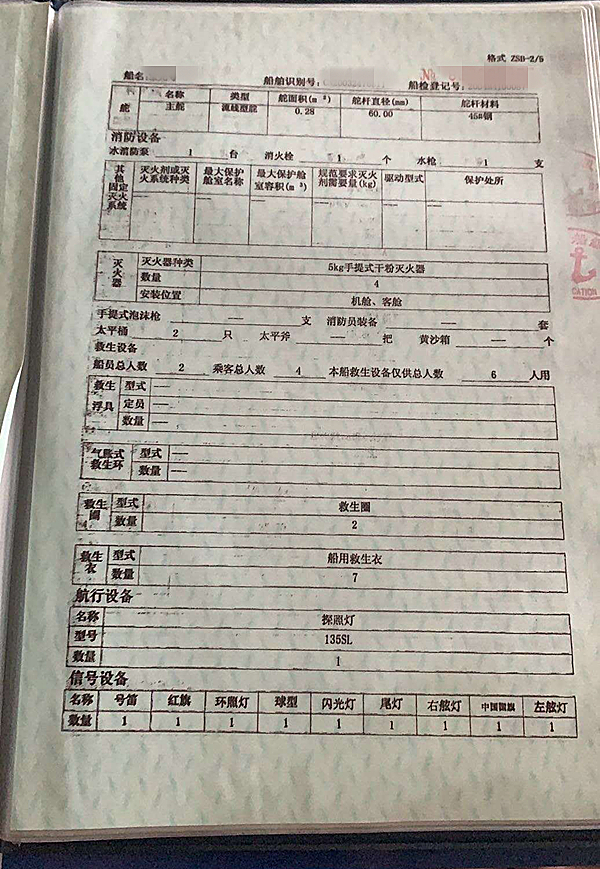 格式 ZSB-2/5
船名 船舶识别号: 船检登记号:
舵 名称 类型 舵面积(m ²) 舵杆直径(mm) 舵杆材料
主舵 流线型舵 0.28 60.00 45#钢
消防设备
水消防泵 1 台 消火栓 1 个 水枪 1 支
其他固定灭火系统 灭火剂或灭火系统种类 最大保护舱室名称 最大保护舱室容积(m ³) 规范要求灭火剂需要量(kg) 驱动型式 保护处所
—— —— —— —— —— ——
灭火器 灭火器种类 5kg手提式干粉灭火器
数量 4
安装位置 机舱、客舱
手提式泡沫枪 —— 支 消防员装备 —— 套
太平桶 2 只 太平斧 —— 把 黄沙箱 —— 个
救生设备
船员总人数 2 乘客总人数 4 本船救生设备仅供总人数 6 人用
救生浮具 型式 ——
定员 ——
数量 ——
气胀式救生环 型式 ——
数量 ——
救生圈 型式 救生圈
数量 2
救生衣 型式 船用救生衣
数量 7
航行设备
名称 探照灯
型号 135SL
数量 1
信号设备
名称 号笛 红旗 环照灯 球型 闪光灯 尾灯 右舷灯 中国国旗 左舷灯
数量 1 1 1 1 1 1 1 1 1
CATION